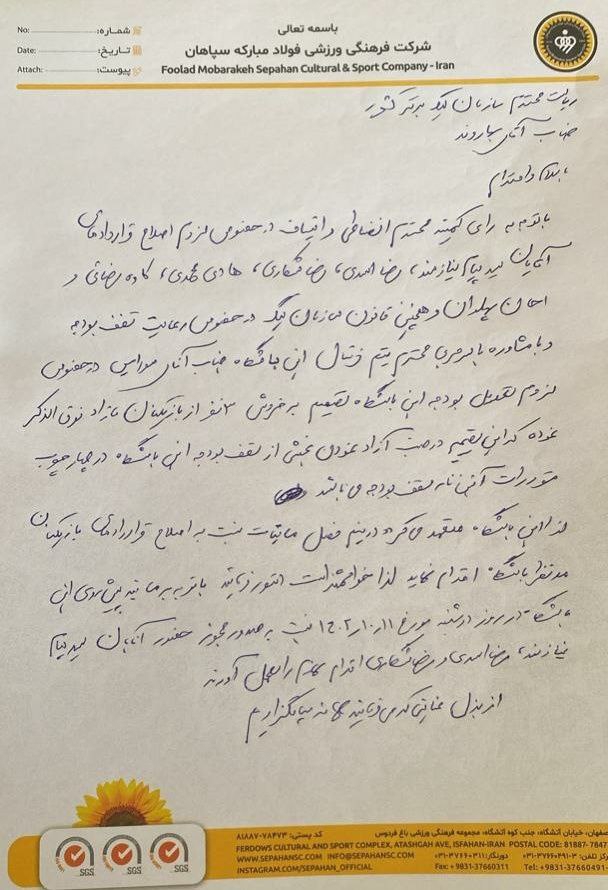 باسمه تعالی
شرکت فرهنگی ورزشی فولاد مبارکه سپاهان
Foolad Mobarakeh Sepahan Cultural & Sport Company - Iran
No: شماره:
Date: تاریخ:
Attach: پیوست:
ریاست محترم سازمان لیگ برتر کشور
جناب آقای سهاروند
با سلام و احترام
با توجه به رای کمیته محترم انضباطی و اتیاف در خصوص لزوم اصلاح قراردادهای
آقایان سید پیام نیازمند، رضا اسدی، رضا شکاری، هادی محمدی، کاوه رضائی و
احسان پهلوان و همچنین قانون سازمان لیگ در خصوص رعایت سقف بودجه
و با مشاوره با سرمربی محترم تیم فوتبال این باشگاه جناب آقای مورایس در خصوص
لزوم تعدیل بودجه این باشگاه تصمیم به فروش ۳ نفر از بازیکنان مازاد فوق الذکر
نموده که این تصمیم در جهت آزاد نمودن بخشی از سقف بودجه این باشگاه در چهارچوب
مقررات آئین نامه سقف بودجه می باشد
لذا این باشگاه متعهد می گردد در نیم فصل مابقات نسبت به اصلاح قراردادهای بازیکنان
مد نظر باشگاه اقدام نماید لذا خواهشمند است دستور فرمائید با توجه به برنامه پیش روی این
باشگاه در روز دوشنبه مورخ ۱۴۰۲/۱۰/۱۱ نسبت به صدور مجوز حضور آقایان سید پیام
نیازمند، رضا اسدی و رضا شکاری اقدام لازم را بعمل آورند
از بذل عنایتی که می فرمائید سپاسگزاریم
SGS SGS SGS
اصفهان، خیابان آتشگاه، جنب کوه آتشگاه، مجموعه فرهنگی ورزشی باغ فردوس کد پستی: ۷۸۴۷۳-۸۱۸۸۷
FERDOWS CULTURAL AND SPORT COMPLEX, ATASHGAH AVE, ISFAHAN-IRAN POSTAL CODE: 81887-7847
WWW.SEPAHANSC.COM INFO@SEPAHANSC.COM دورنگار: ۰۳۱-۳۷۶۶۰۳۱۱ مرکز تلفن: ۳-۰۳۱-۳۷۶۶۰۴۹۱
INSTAGRAM.COM/SEPAHAN_OFFICIAL Fax: +9831-37660311 Tel: +9831-37660491-